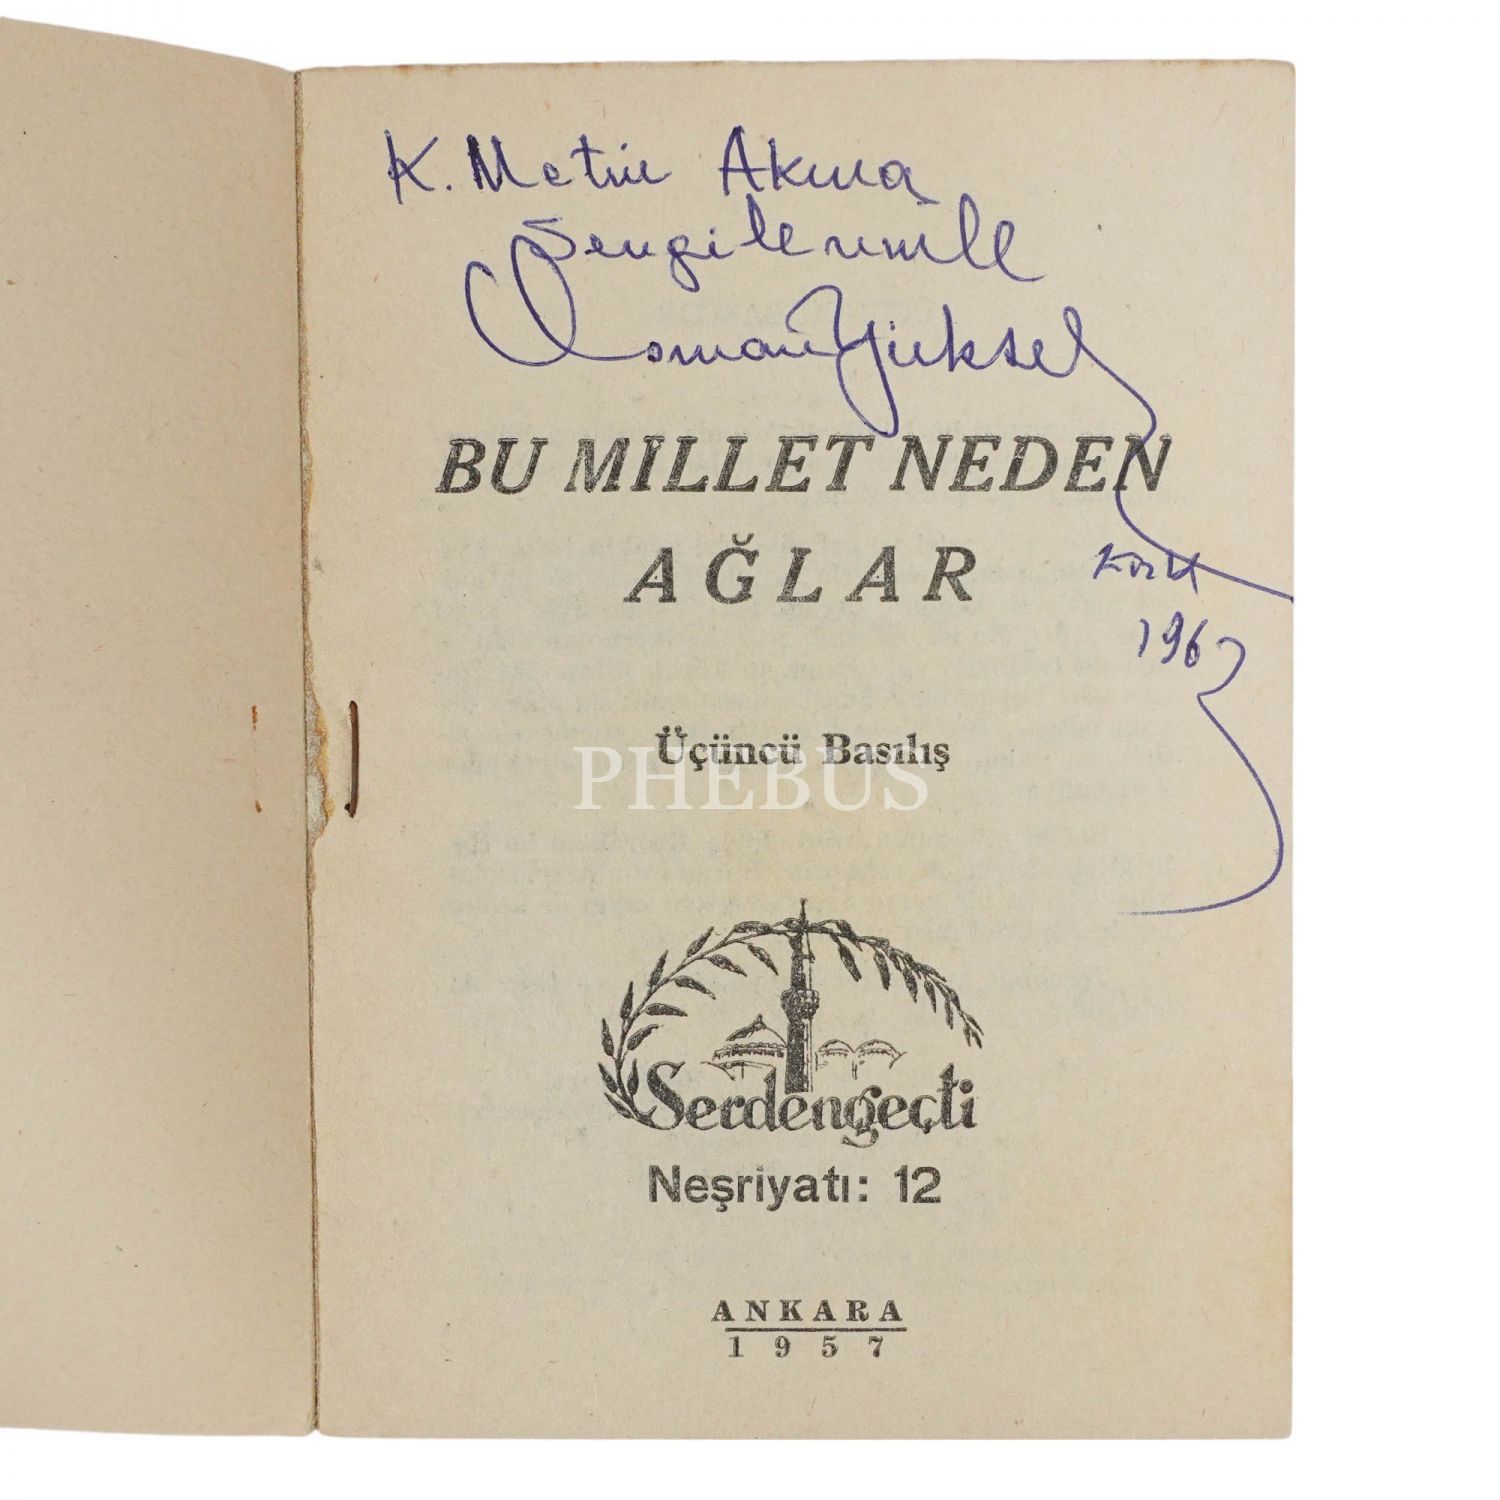 K. Metin Akına
Sevgilerimle
Osman Yüksel
BU MİLLET NEDEN
AĞLAR
196
Üçüncü Basılış
PHEBUS
Serdengeçti
Neşriyatı: 12
ANKARA
1957